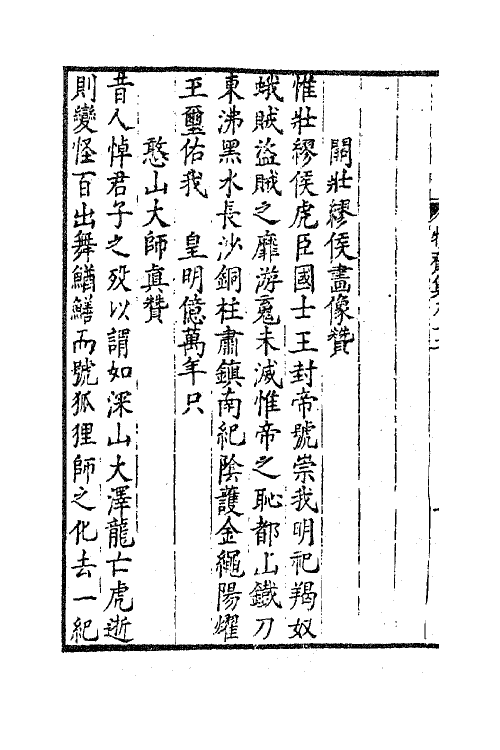 關壯繆侯畫像贊
惟壯繆侯虎臣國士王封帝號崇我明祀羯奴
蛾賊盜賊之靡游䰟未滅惟帝之恥都山鐵刀
東沸黑水長沙銅柱肅鎮南紀陰護金繩陽燿
玉璽佑我　皇明億萬年只
憨山大師真贊
昔人悼君子之歿以謂如深山大澤龍亡虎逝
則變怪百出舞鰌鱔而號狐狸師之化去一紀